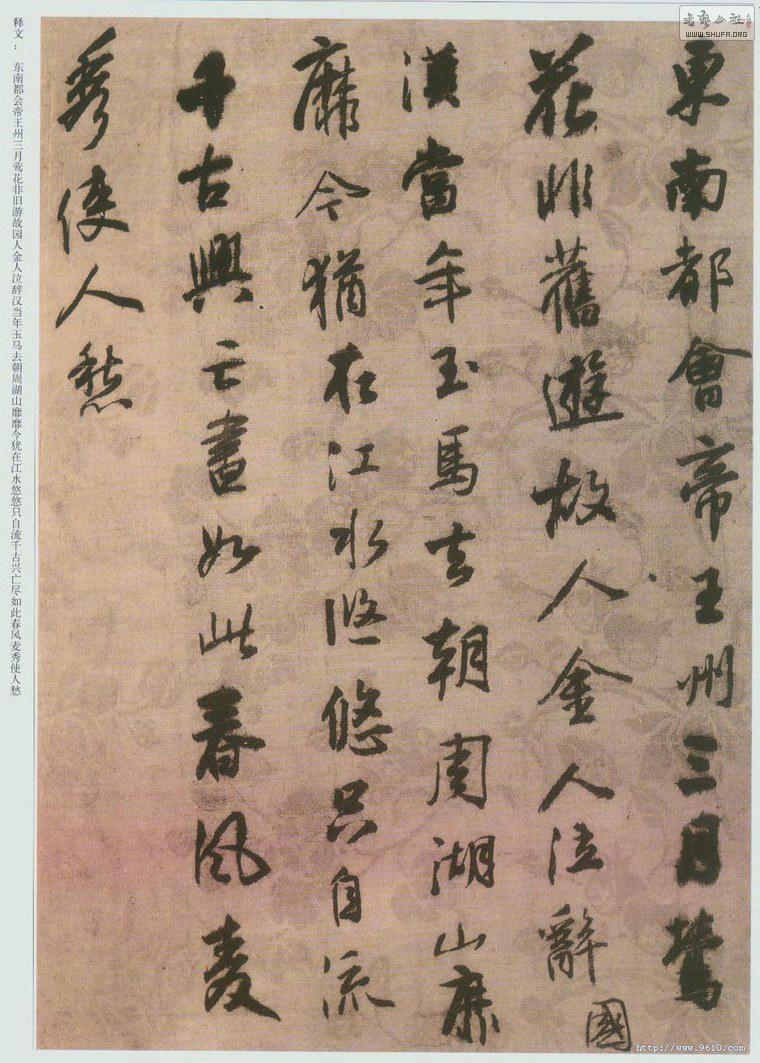 書法公社
WWW.SHUFA.ORG
東南都會帝王州三月鶯
花非舊遊故人金人泣辭
國
漢當年玉馬去朝周湖山靡
靡今猶在江水悠悠只自流
千古興亡盡如此春風麥
秀使人愁
释文： 东南都会帝王州三月莺花非旧游故园人金人泣辞汉当年玉马去朝周湖山靡靡今犹在江水悠悠只自流千古兴亡尽如此春风麦秀使人愁
http://www.9610.com/